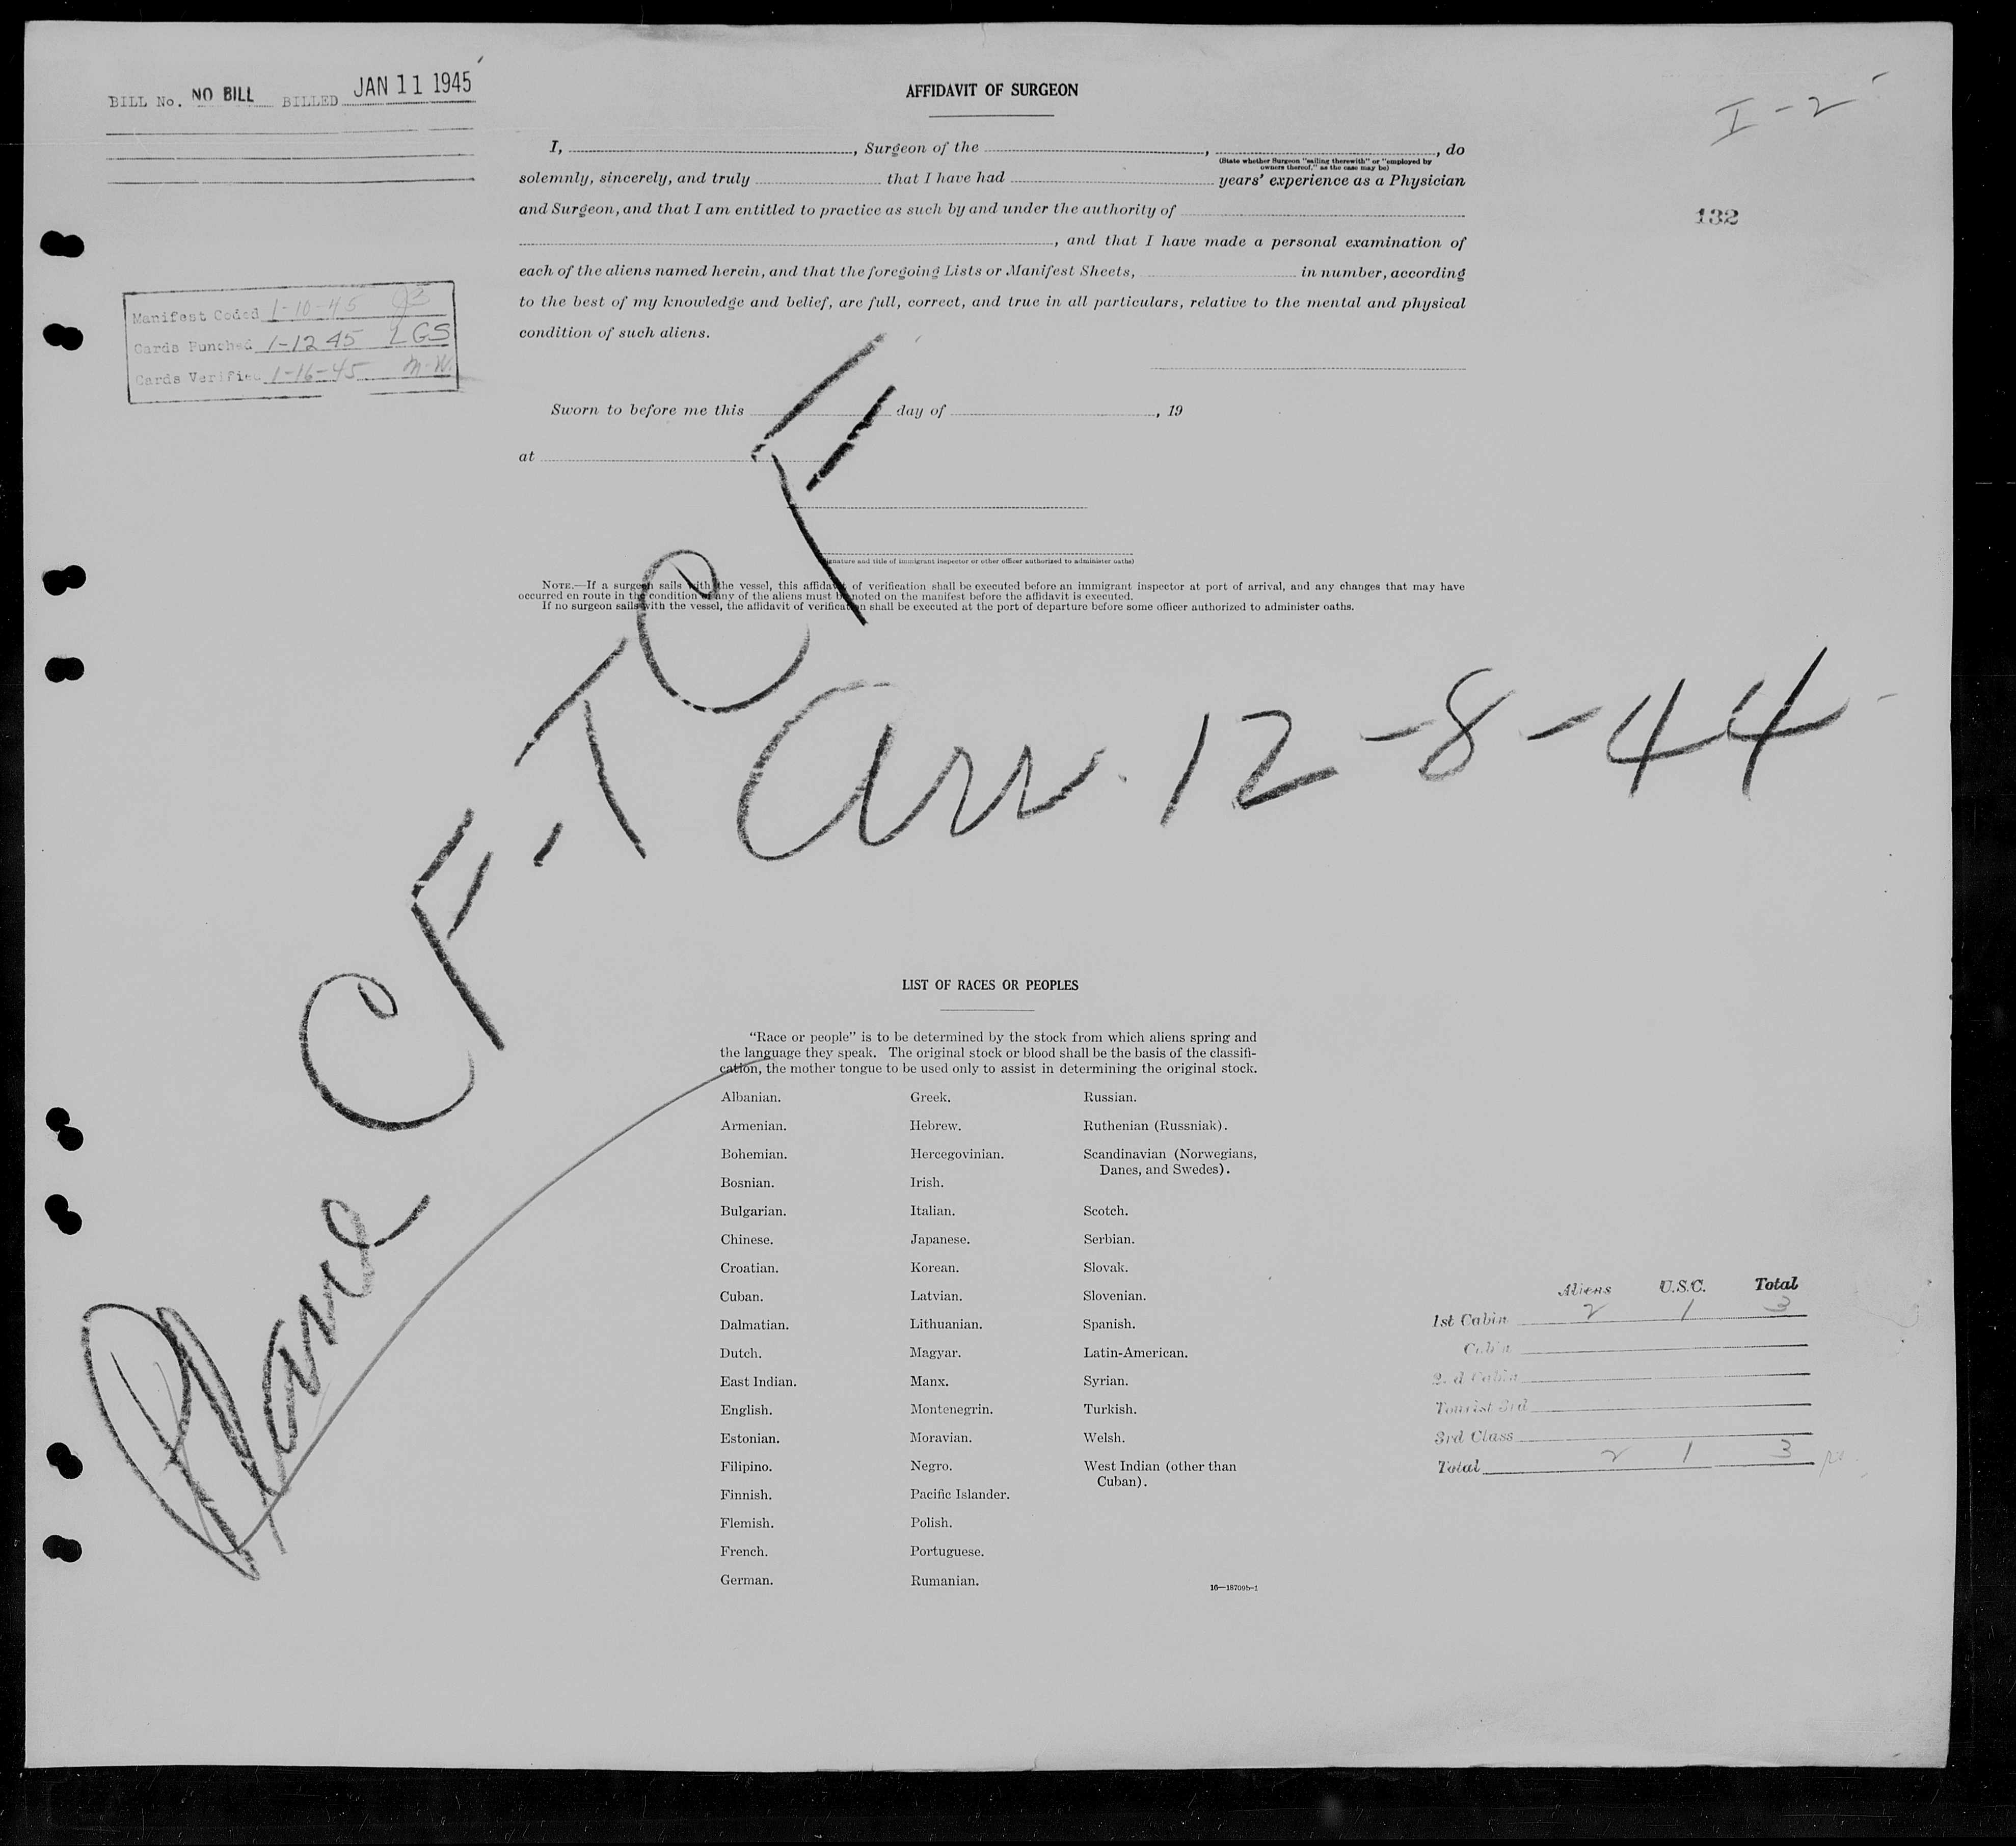 BILL No. NO BILL BILLED JAN 11 1945
AFFIDAVIT OF SURGEON
I - 2
I, , Surgeon of the , , do
(State whether Surgeon "sailing therewith" or "employed by
owners thereof," as the case may be)
solemnly, sincerely, and truly that I have had years' experience as a Physician
and Surgeon, and that I am entitled to practice as such by and under the authority of
132
, and that I have made a personal examination of
each of the aliens named herein, and that the foregoing Lists or Manifest Sheets, in number, according
to the best of my knowledge and belief, are full, correct, and true in all particulars, relative to the mental and physical
condition of such aliens.
Manifest Coded 1-10-45
Cards Punched 1-12 45 LGS
Cards Verified 1-16-45 M-W.
Sworn to before me this day of , 19
at
(Signature and title of immigrant inspector or other officer authorized to administer oaths)
NOTE.—If a surgeon sails with the vessel, this affidavit of verification shall be executed before an immigrant inspector at port of arrival, and any changes that may have
occurred en route in the condition of any of the aliens must be noted on the manifest before the affidavit is executed.
If no surgeon sails with the vessel, the affidavit of verification shall be executed at the port of departure before some officer authorized to administer oaths.
Plane CF-TCF
Arr. 12-8-44
LIST OF RACES OR PEOPLES
"Race or people" is to be determined by the stock from which aliens spring and
the language they speak. The original stock or blood shall be the basis of the classifi-
cation, the mother tongue to be used only to assist in determining the original stock.
Albanian.
Armenian.
Bohemian.
Bosnian.
Bulgarian.
Chinese.
Croatian.
Cuban.
Dalmatian.
Dutch.
East Indian.
English.
Estonian.
Filipino.
Finnish.
Flemish.
French.
German.
Greek.
Hebrew.
Hercegovinian.
Irish.
Italian.
Japanese.
Korean.
Latvian.
Lithuanian.
Magyar.
Manx.
Montenegrin.
Moravian.
Negro.
Pacific Islander.
Polish.
Portuguese.
Rumanian.
Russian.
Ruthenian (Russniak).
Scandinavian (Norwegians,
Danes, and Swedes).
Scotch.
Serbian.
Slovak.
Slovenian.
Spanish.
Latin-American.
Syrian.
Turkish.
Welsh.
West Indian (other than
Cuban).
16—18709b-1
Aliens U.S.C. Total
1st Cabin 2 1 3
Cabin
2nd Cabin
Tourist 3rd
3rd Class
Total 2 1 3